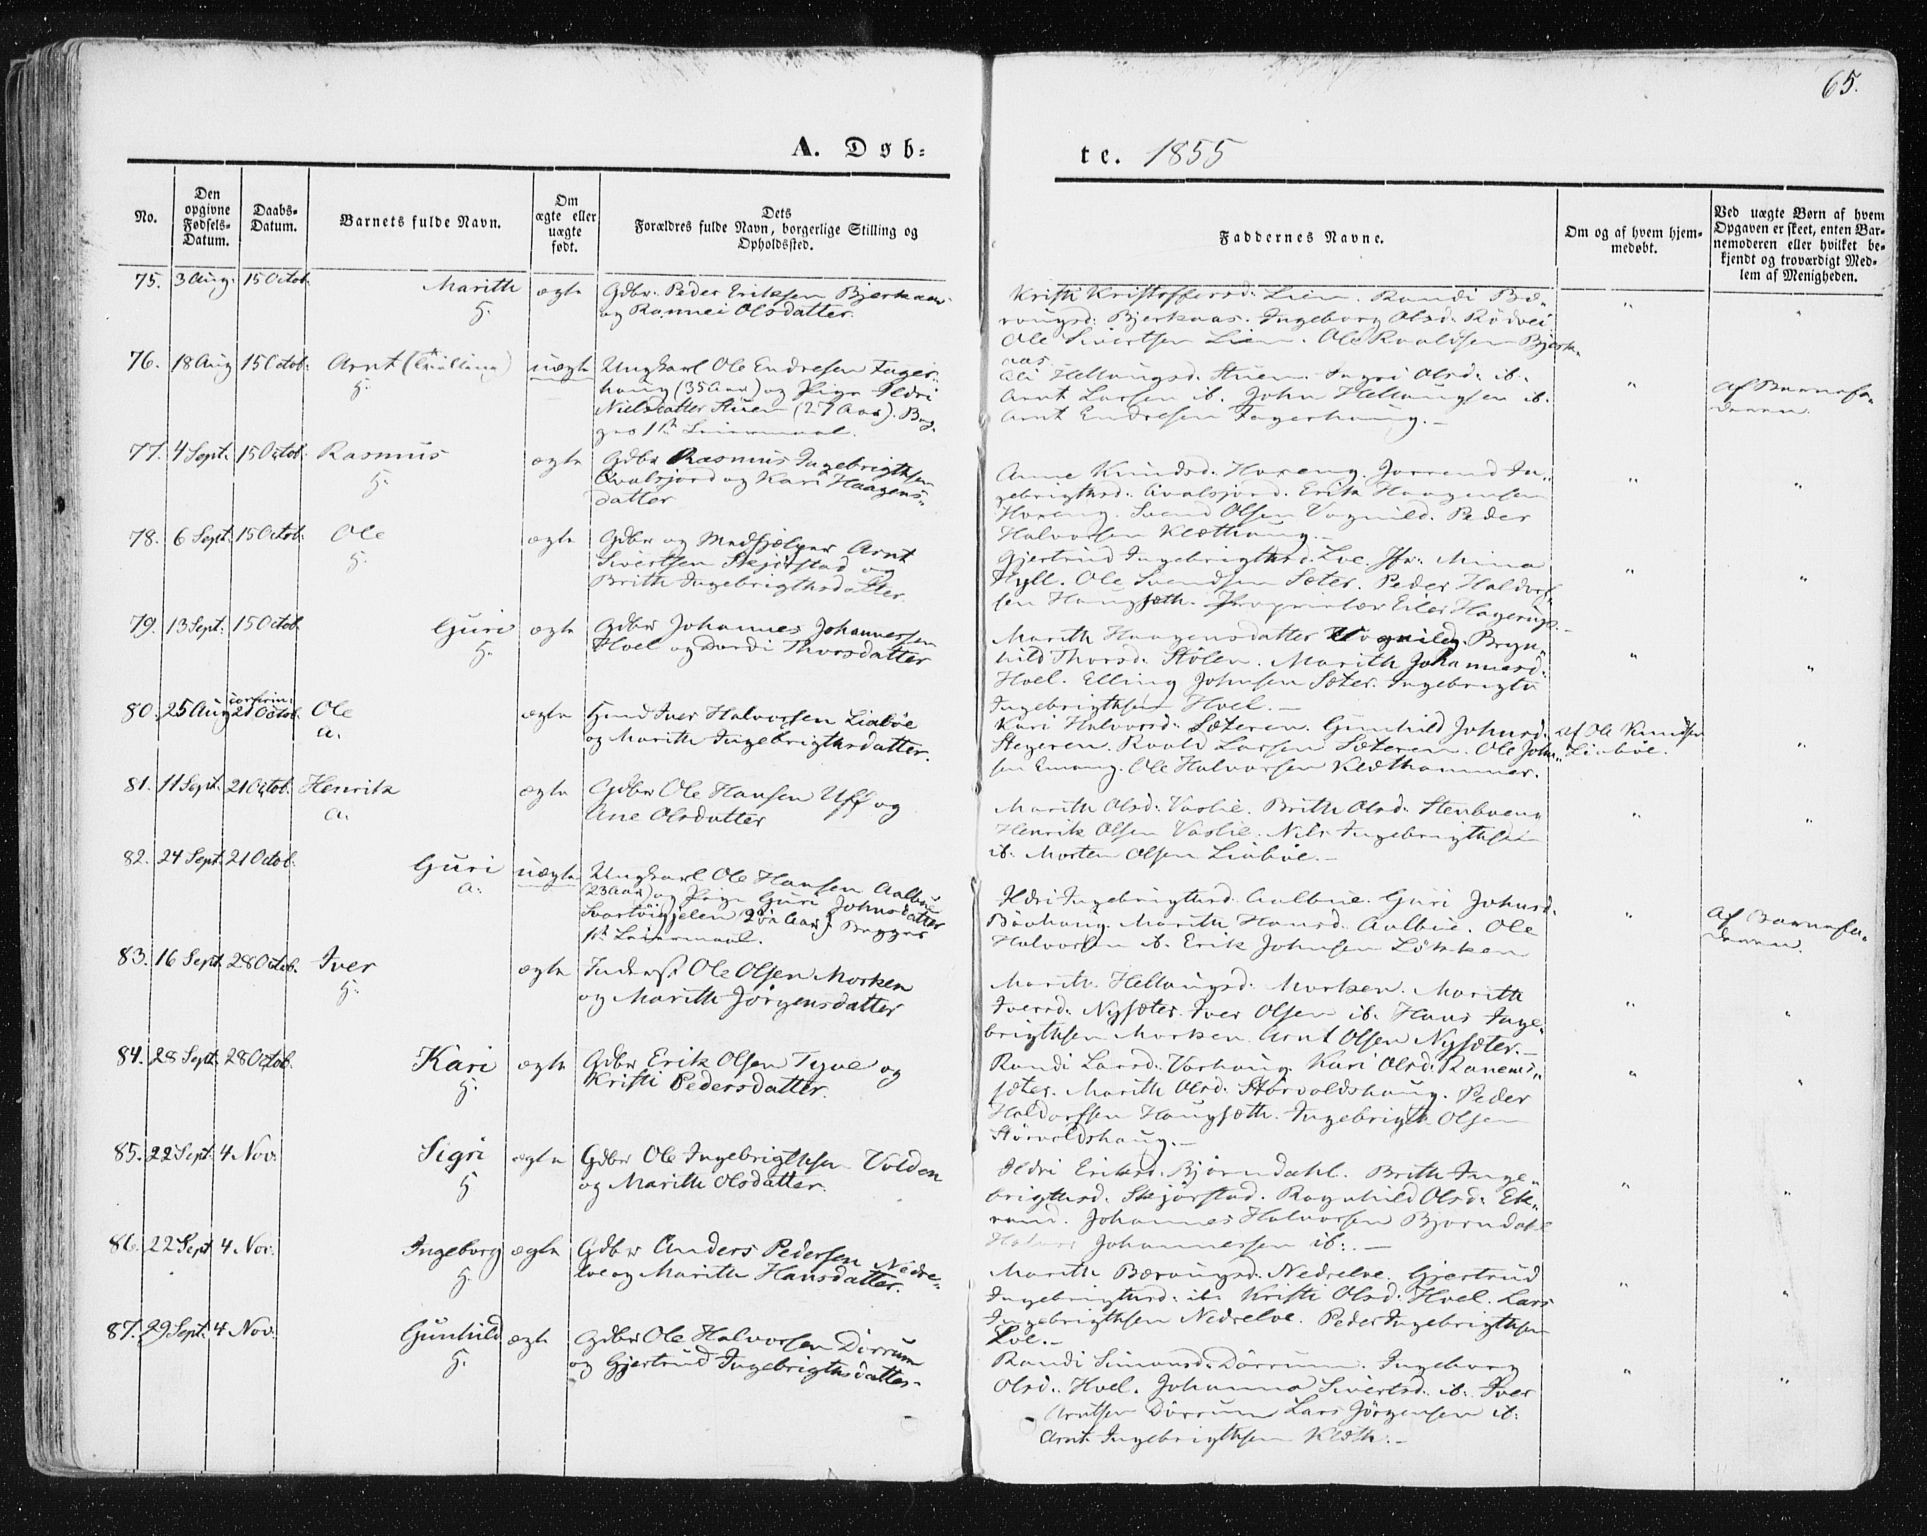 65.
A. Døb-
te. 1855
No.
Den opgivne Fødsels-Datum.
Daabs-Datum.
Barnets fulde Navn.
Om ægte eller uægte født.
Dets Forældres fulde Navn, borgerlige Stilling og Opholdssted.
Faddernes Navne.
Om og af hvem hjemmedøbt.
Ved uægte Børn af hvem Opgaven er skeet, enten Barnemoderen eller hvilket bekjendt og troværdigt Medlem af Menigheden.
75. 3 Aug. 15 Octob. Marith ægte Gdbr. Peder Eriksen Bjerkaas
H. og Rannei Olsdatter.
Kristi Kristoffersd. Lien. Randi Bæ-
rougsd. Bjerkaas. Ingeborg Olsd. Rødvei
Ole Sivertsen Lien. Ole Roaldsen Bjerk-
aas
76. 18 Aug 15 Octob. Arnt uægte Ungkarl Ole Endresen Fager-
H. haug (35 Aar) og Pige Ildri
Nielsdatter Stuen (27 Aar). Beg-
ges 1st Leiermaal.
Hellaugsd. Stuen. Ingri Olsd. ib.
Arnt Larsen ib. John Hellaugsen ib.
Arnt Endresen Fagerhaug.-
Af Barnefa-
deren.
77. 4 Sept. 15 Octob. Rasmus ægte Gdbr Rasmus Ingebrigtsen
H. Qvalsjord og Kari Haagens-
datter
Anne Knudsd. Horeng. Jorrend In-
gebrigtsd. Qvalsjord. Erik Haagensen
Horeng. Svend Olsen Vognild. Peder
Halvorsen Klæthaug.-
78. 6 Sept. 15 Octob. Ole ægte Gdbr og Medhjelper Arnt
H. Sivertsen Skjørstad og
Brith Ingebrigtsdatter.
Gjertrud Ingebrigtsd. Loe. Jfr. Mina
Hyll. Ole Svendsen Sæter. Peder Haldor-
sen Haugsæth. Proprietær Eiler Hagerup.-
79. 13 Sept. 15 Octob. Guri ægte Gdbr Johannes Johannessen
H. Hoel og Dordi Thorsdatter
Marith Haagensdatter Vognild. Bryn-
hild Thorsd. Stølen. Marith Johannesd.
Hoel. Elling Johnsen Sæter. Ingebrigt
Ingebrigtsen Hoel.-
80. 25 Aug confirm: 21 Octob. Ole ægte Hmd Iver Halvorsen Liabøe
a. og Marith Ingebrigtsdatter.
Kari Halvorsd. Sæteren. Gunhild Johnsd. Af Ole Knudsen
Stegeren. Roald Larsen Sæteren. Ole John- Liabøe.
sen Emaug. Ole Halvorsen Klethammer.
81. 11 Sept. 21 Octob. Henrik ægte Gdbr Ole Hansen Uff og
a. Ane Olsdatter
Marith Olsd. Vaslie. Brith Olsd. Stenboen
Henrik Olsen Vaslie. Nils Ingebrigtsen
ib. Morten Olsen Liabøe.-
82. 24 Sept. 21 Octob. Guri uægte Ungkarl Ole Hansen Aalbue
a. (23 Aar) og Pige Guri Johnsdatter
1st Leiermaal.
Ildri Ingebrigtsd. Aalbue. Guri Johnsd.
Bøehaug. Marith Hansd. Aalbue. Ole
Halvorsen ib. Erik Johnsen Løkken
Af Barnefa-
deren.
83. 16 Sept. 28 Octob. Iver ægte Inderst Ole Olsen Morken
H. og Marith Jørgensdatter
Marith Hellaugsd. Morken. Marith
Iversd. Nysæter. Iver Olsen ib. Hans Inge-
brigtsen Morken. Arnt Olsen Nysæter.-
84. 28 Sept. 28 Octob. Kari ægte Gdbr Erik Olsen Tyve og
H. Kristi Pedersdatter.
Randi Larsd. Vorhaug. Kari Olsd. Ranems-
sæter. Marith Olsd. Størvoldshaug. Peder
Haldorssen Haugsæth. Ingebrigt Olsen
Størvoldshaug.-
85. 22 Sept. 4 Nov. Sigri ægte Gdbr Ole Ingebrigtsen Volden
H og Marith Olsdatter.
Ildri Eriksd. Bjørndahl. Brith Inge-
brigtsd. Skjørstad. Ragnhild Olsd. Ek-
rand. Johannes Halvorsen Bjørndahl
Johannessen ib.-
86. 22 Sept 4 Nov. Ingeborg ægte Gdbr Anders Pedersen Nedre-
H. loe og Marith Hansdatter.
Marith Bærougsd. Nedreloe. Gjertrud
Ingebrigtsd. ib. Kristi Olsd. Hoel. Lars
Ingebrigtsen Nedreloe. Peder Ingebrigtsen
Loe.-
87. 29 Sept. 4 Nov. Gunhild ægte Gdbr Ole Halvorsen Dørrum
H. og Gjertrud Ingebrigtsdatter.
Randi Simonsd. Dørrum. Ingeborg
Olsd. Hoel. Johanna Sivertsd. ib. Iver
Arntsen Dørrum Lars Jørgensen ib.
Arnt Ingebrigtsen Klæth.-